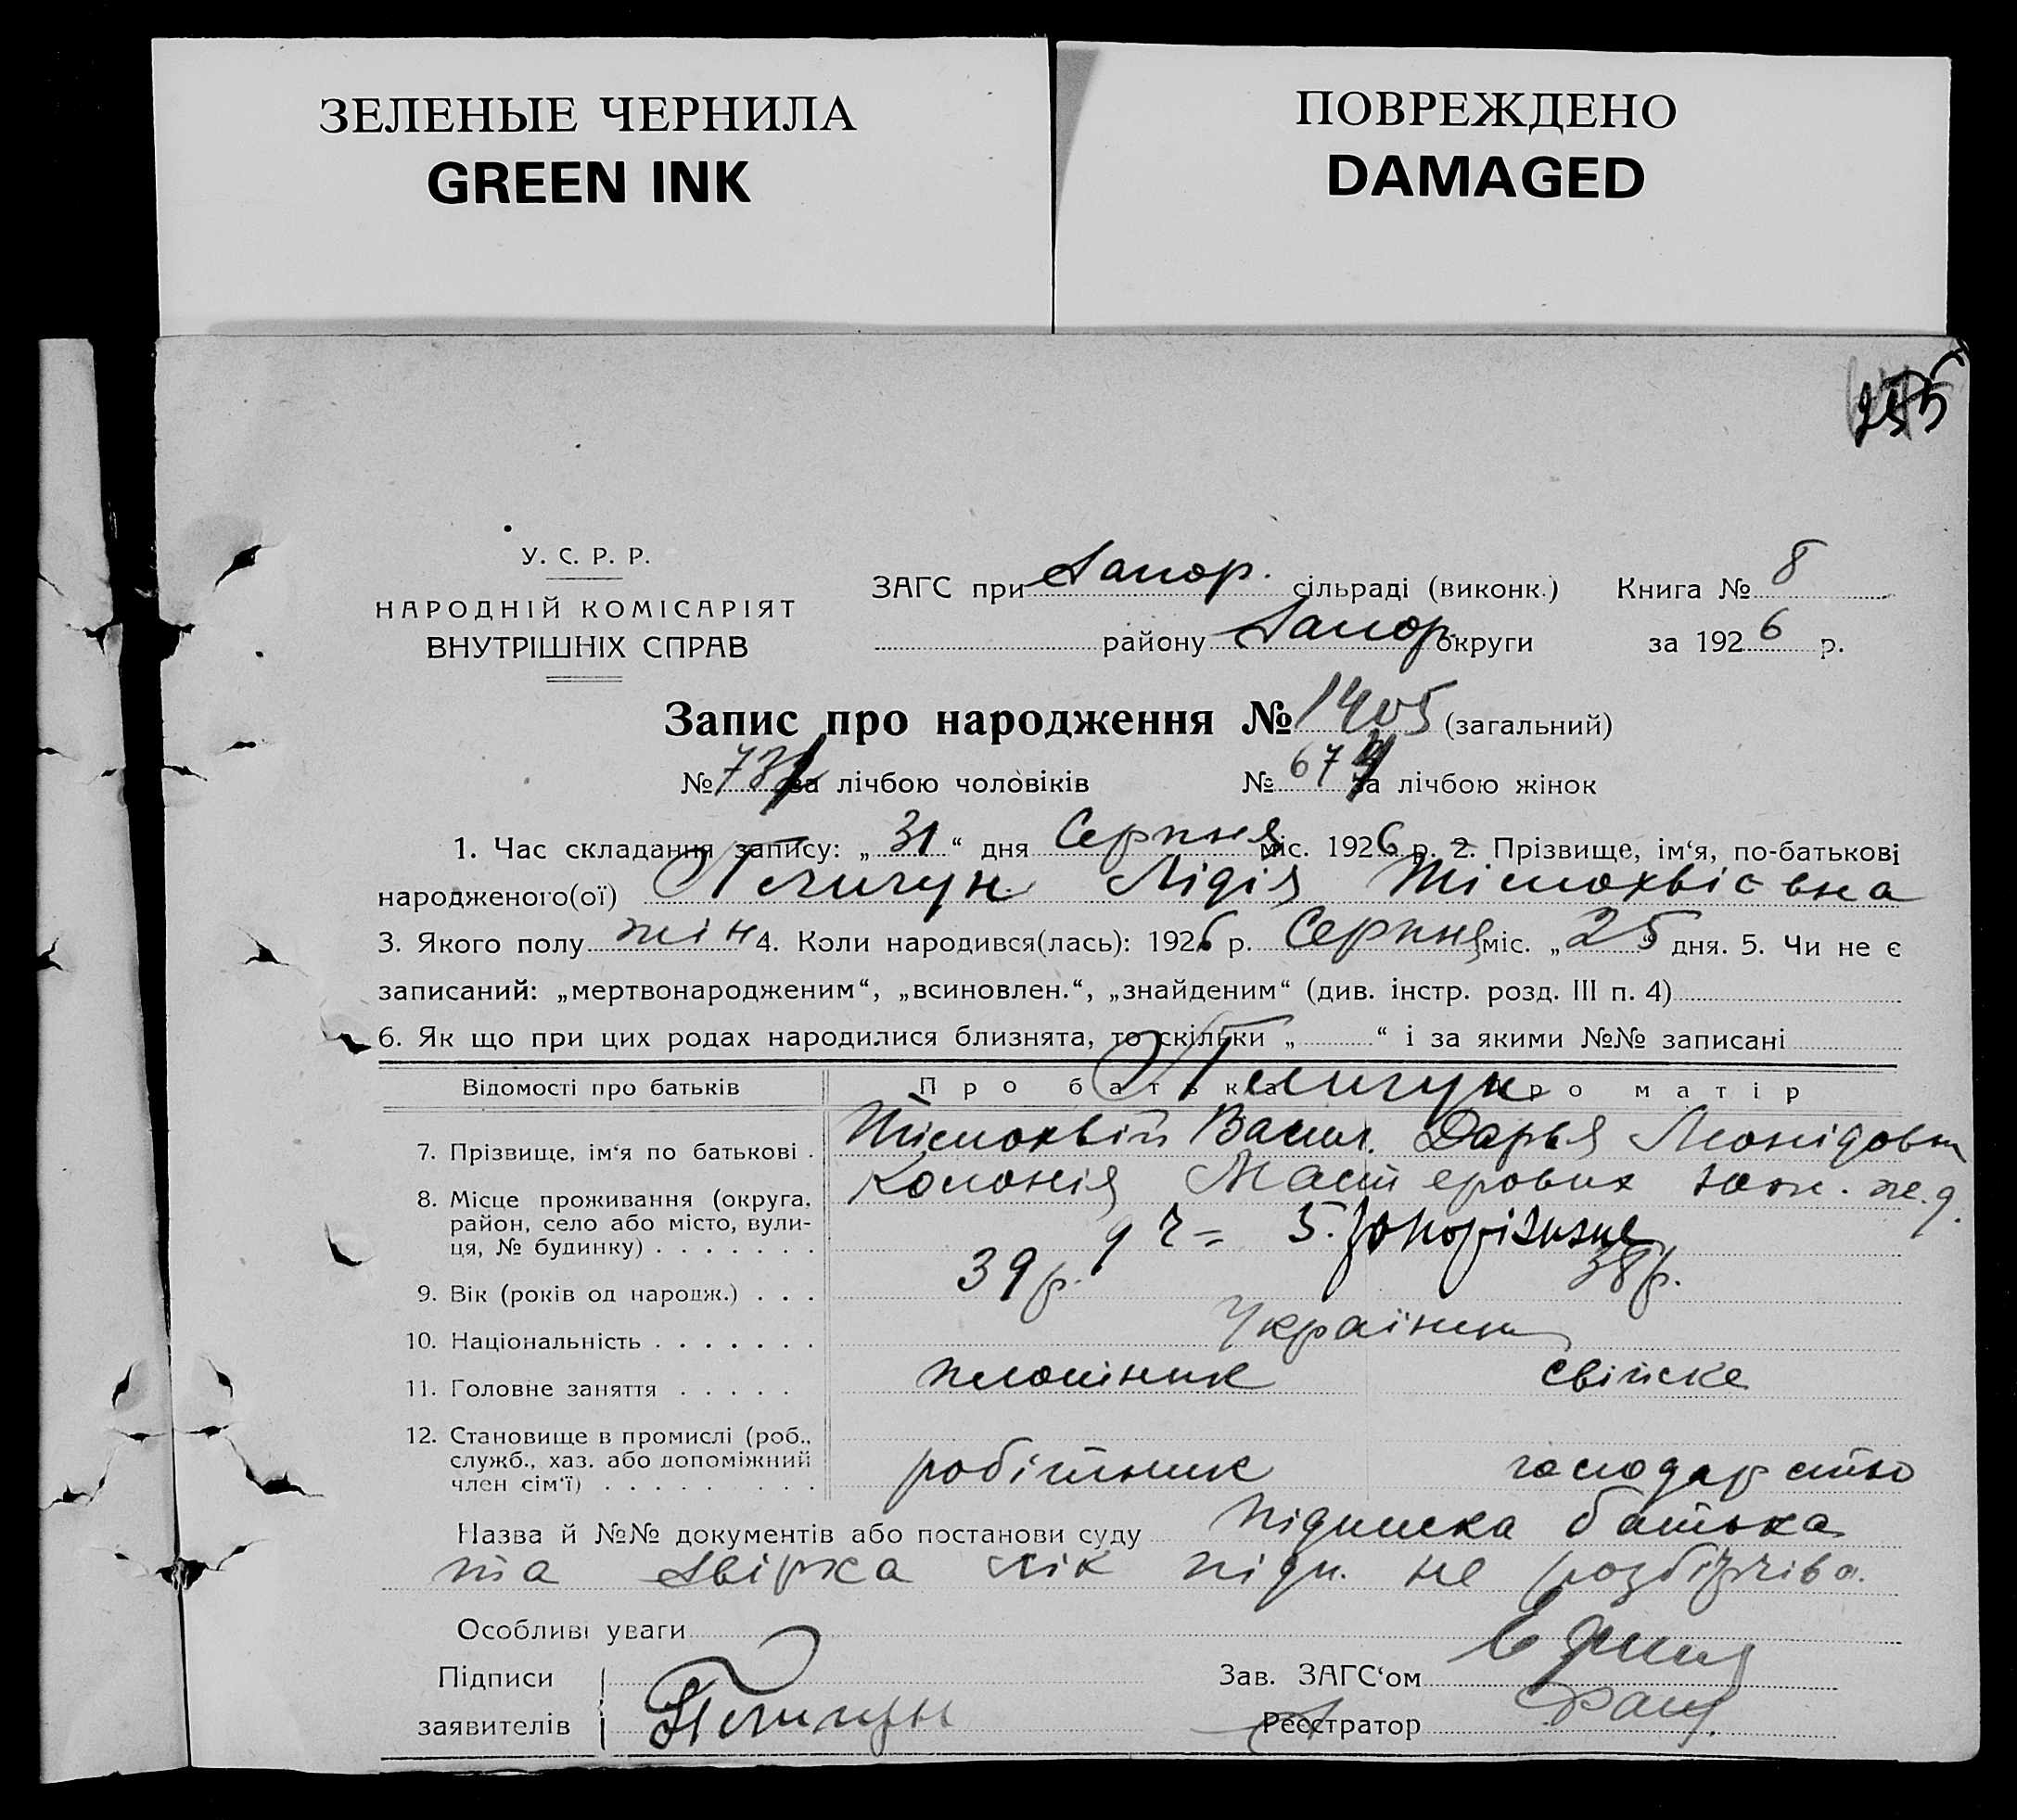 ЗЕЛЕНЫЕ ЧЕРНИЛА
GREEN INK
ПОВРЕЖДЕНО
DAMAGED
255
У. С. Р. Р.
НАРОДНІЙ КОМІСАРІЯТ
ВНУТРІШНІХ СПРАВ
ЗАГС при Запор. сільраді (виконк.) Книга № 8
району Запор. округи за 1926 р.
Запис про народження № 1405 (загальний)
№ 731 за лічбою чоловіків № 674 за лічбою жінок
1. Час складання запису: „31“ дня Серпня міс. 1926 р. 2. Прізвище, ім‘я, по-батькові
народженого(ої) Пличун Лідія Тімохвієвна
3. Якого полу жін 4. Коли народився(лась): 1926 р. Серпня міс. „25“ дня. 5. Чи не є
записаний: „мертвонародженим“, „всиновлен.“, „знайденим“ (див. інстр. розд. III п. 4)
6. Як що при цих родах народилися близнята, то скільки „ “ і за якими №№ записані
Відомості про батьків Про батька Про матір
Пличун
7. Прізвище, ім‘я по батькові . Тімохвій Васил. Дарья Леонідовн
8. Місце проживання (округа, район, село або місто, вули-ця, № будинку) . . . . . . . Колонія Мастерових Южн. ж.д.
5. Запоріжжє
9. Вік (років од народж.) . . . 39 р. 38 р.
10. Національність . . . . . . . Українці
11. Головне заняття . . . . . плотник свійске
12. Становище в промислі (роб., служб., хаз. або допоміжний член сім‘ї) . . . . . . . . . робітник господарство
Назва й №№ документів або постанови суду підписка батька
та звірка лік підп. не розбірчіво.
Особливі уваги
Підписи Зав. ЗАГС‘ом
заявителів Пличун Реєстратор